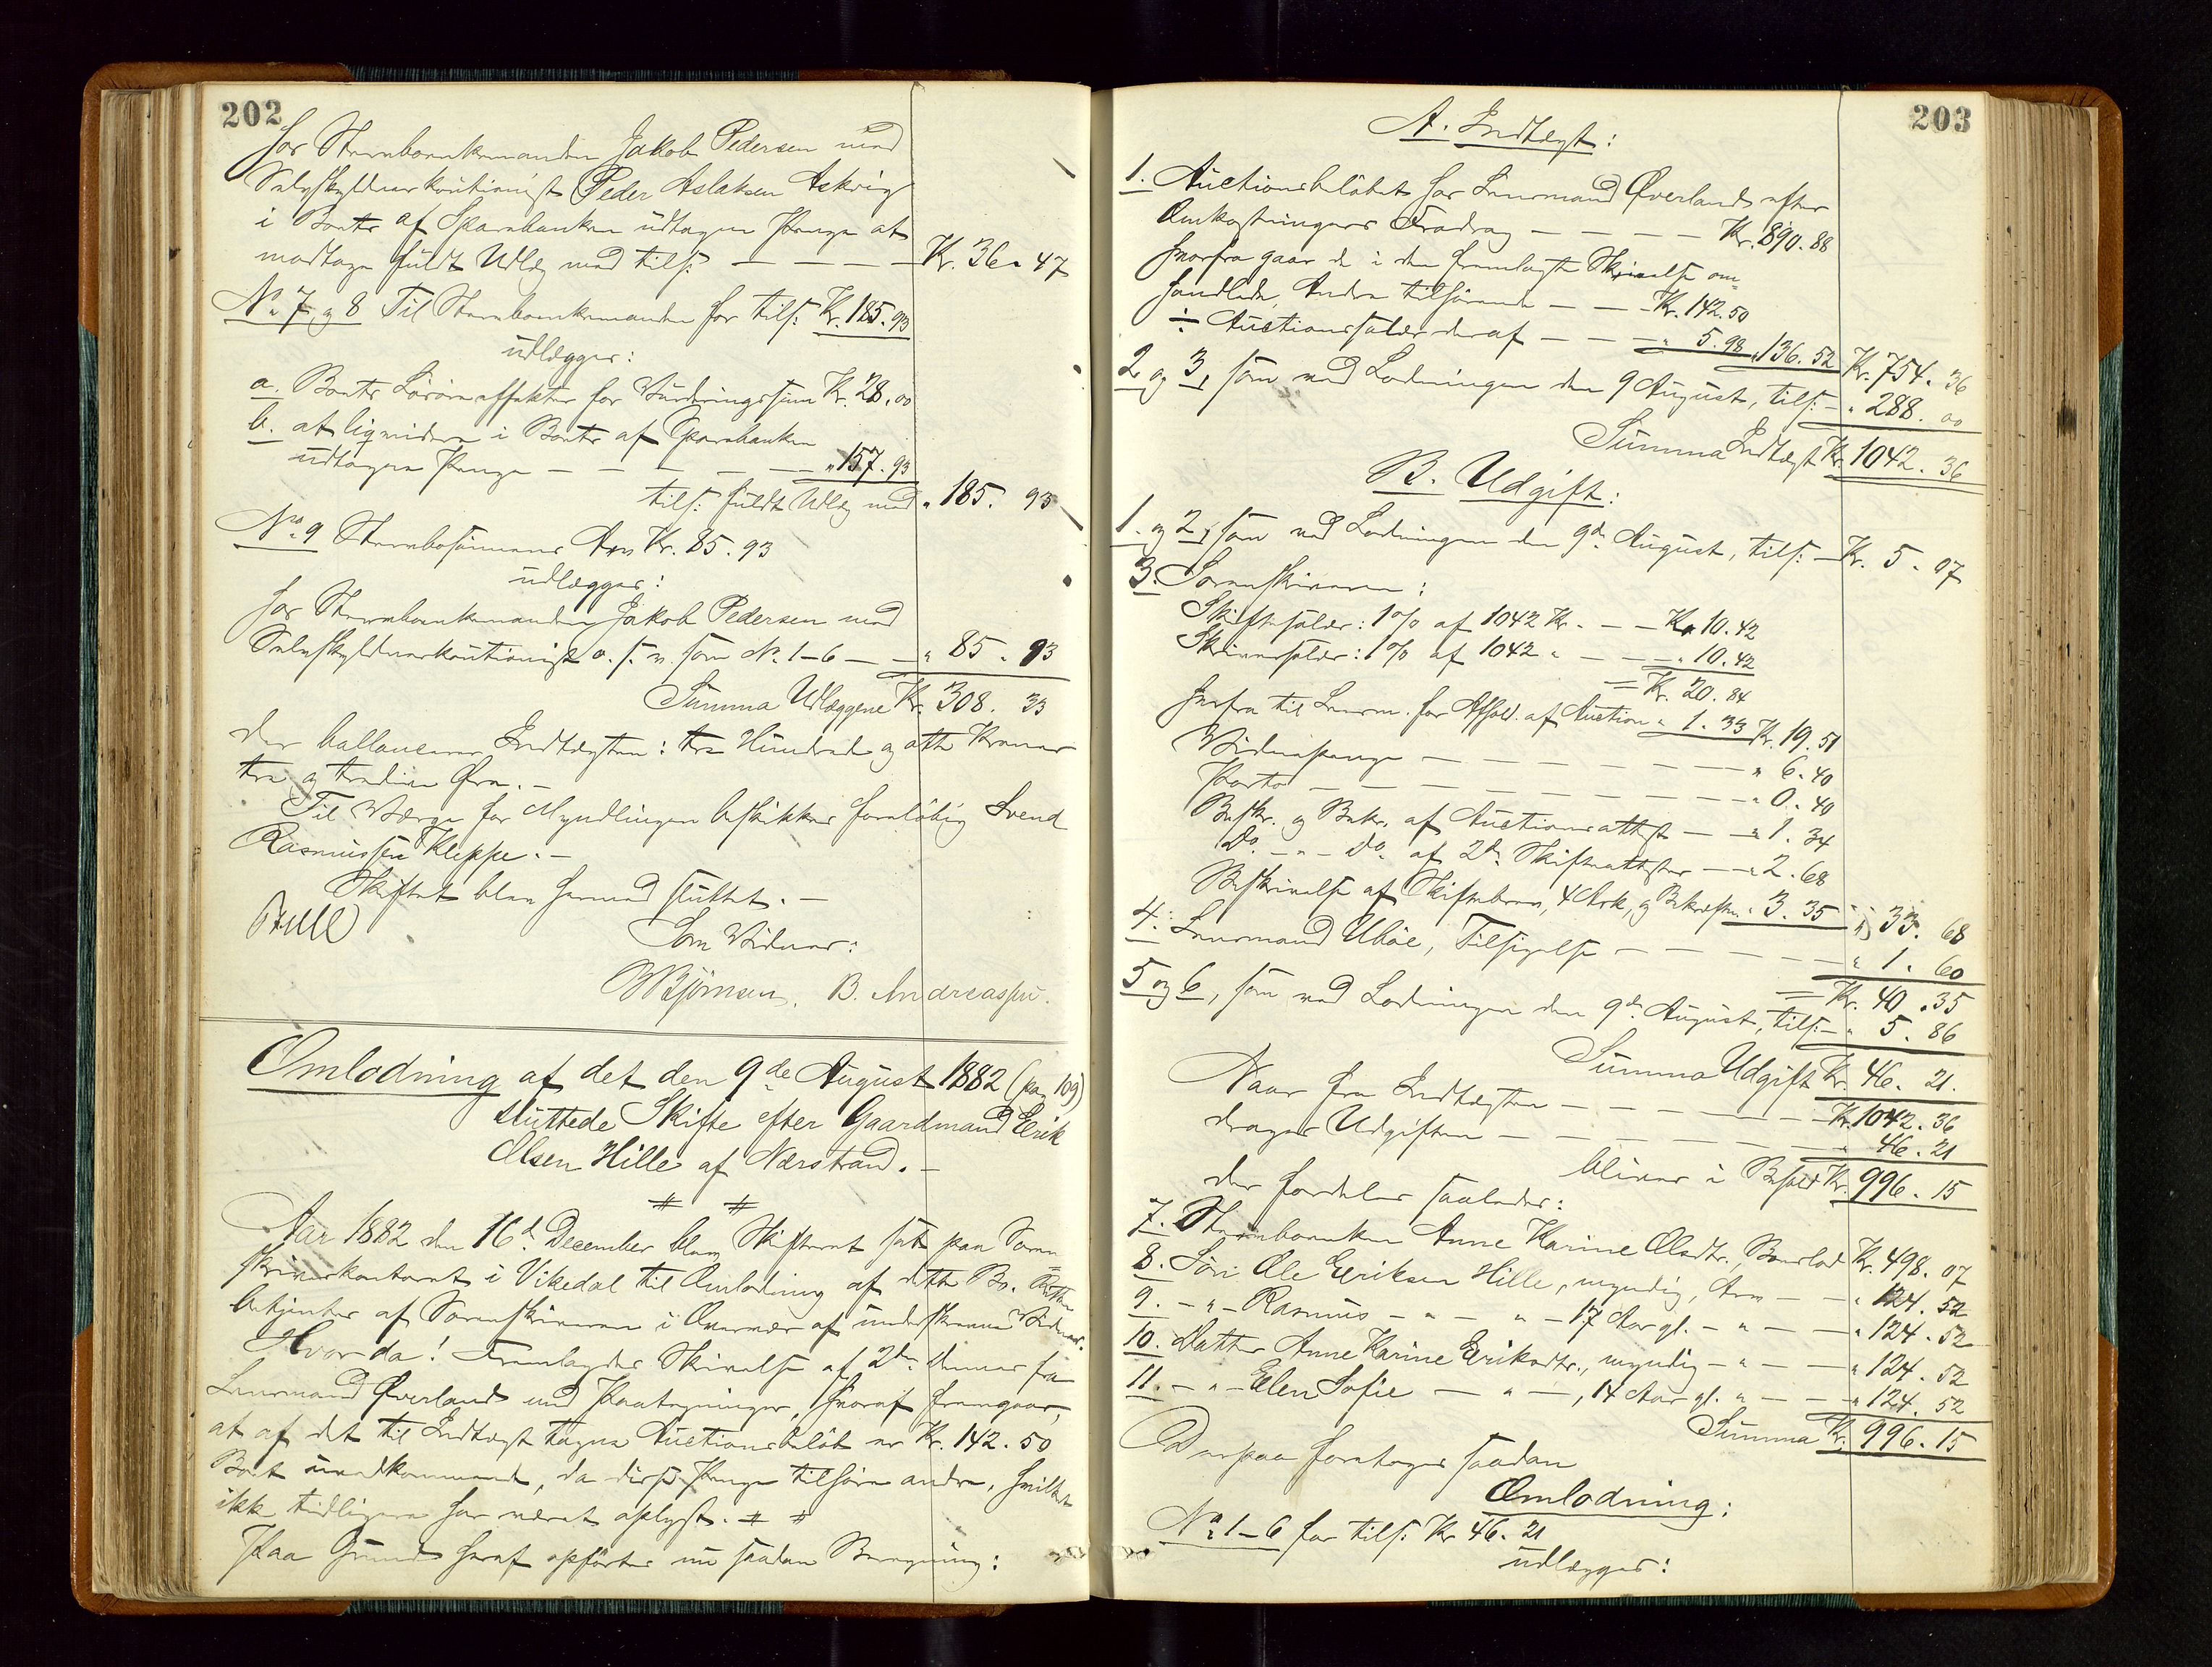 202
hos Stervboenkemanden Jakob Pedersen med
Selvskyldnerkautionist Peder Aslaksen Askvig
i Boets af Sparebanken udtagne Penge at
modtage fuldt Udlæg med tils: — — — — Kr. 36.47
No 7 og 8 Til Stervboenkemanden for tils: Kr. 185.93
udlægges:
a. Boets Løsøreeffekter for Vurderingssum Kr. 28.00
b. at liqvidere i Boets af Sparebanken
udtagne Penge — — — — — — " 157.93
tils: fuldt Udlæg med " 185. 93
No 9 Stervbosønnens Arv Kr. 85.93
udlægges:
hos Stervboenkemanden Jakob Pedersen med
Selvskyldnerkautionist o. s. v. som No 1-6 — — " 85. 93
Summa Udlæggene Kr. 308. 33
der ballancerer Indtægten: tre Hundrede og otte Kroner
tre og tredive Øre. —
Til Værge for Myndlingen beskikkes foreløbig Svend
Rasmussen Kleppe. —
Skiftet blev hermed sluttet. —
Som Vidner:
BBjörnsen. B. Andreassen.
Omlodning af det den 9de August 1882 (pag 109)
sluttede Skifte efter Gaardmand Eerik
Olsen Hille af Nærstrand. —
# #
Aar 1882 den 16d December blev Skifteret sat paa Soren-
skriverkontoret i Vikedal til Omlodning af dette Bo. Retten
betjentes af Sorenskriveren i Overvær af underskrevne Vidner.
Hvorda! Fremlagdes Skrivelse af 2den dennes fra
Lensmand Øverland med Paategninger, hvoraf fremgaar,
at af det til Indtægt tagne Auctionsbeløb er Kr. 142.50
Boet uvedkommende, da disse Penge tilhøre andre, hvilket
ikke tidligere har været oplyst. # #
Paa Grund heraf opførtes nu saadan Beregning:
203
A. Indtægt:
1. Auctionsbeløbet hos Lensmand Øverland efter
Omkostningers Fradrag — — — — — Kr. 890.88
hvorfra gaar de i den fremlagte Skrivelse om-
handlede, Andre tilhørende — — — Kr. 142.50
÷ Auctionssalær deraf — — — — " 5.98 " 136.52 Kr. 754. 36
2 og 3, som ved Lodningen den 9 August, tils: — " 288. 00
Summa Indtægt Kr. 1042. 36
B. Udgift:
1. og 2, som ved Lodningen den 9de August, tils: — Kr. 5. 07
3. Sorenskriveren:
Skiftesalær: 1% af 1042 Kr. — — Kr. 10.42
Skriversalær: 1% af 1042 " — — — " 10.42
= Kr. 20.84
herfra til Lensm. for Afhold. af Auction " 1.33 Kr. 19.51
Vidnepenge — — — — — — — — " 6.40
Porto — — — — — — — — — " 0.40
Beskr. og Bekr. af Auctionsattest — — " 1.34
Do. — " — Do. af 2de Skifteattester — — " 2.68
Beskrivelse af Skiftebrev, 4 Ark, og Bekræften " 3.35 " 33. 68
4. Lensmand Ubøe, Tilsigelse — — — — — " 1. 60
= Kr. 40.35
5 og 6, som ved Lodningen den 9de August, tils: — " 5. 86
Summa Udgift Kr. 46. 21.
Naar fra Indtægten — — — — — — — Kr. 1042.36
drages Udgiften — — — — — — — " 46.21
bliver i Behold Kr. 996.15
der fordeles saaledes:
7. Stervboenken Anne Karine Olsdtr., Boeslod Kr. 498. 07
8. Søn Ole Eeriksen Hille, myndig, Arv — — " 124. 52
9. — " — Rasmus — " — " — 17 Aar gl. — " — — " 124. 52
10. Datter Anne Karine Eeriksdtr., myndig — " — — " 124. 52
11. — " — Elen Sofie — " —, 14 Aar gl. " — — " 124. 52
Summa Kr. 996.15
Derpaa foretoges saadan
Omlodning:
No 1-6 for tils: Kr 46.21
udlægges: